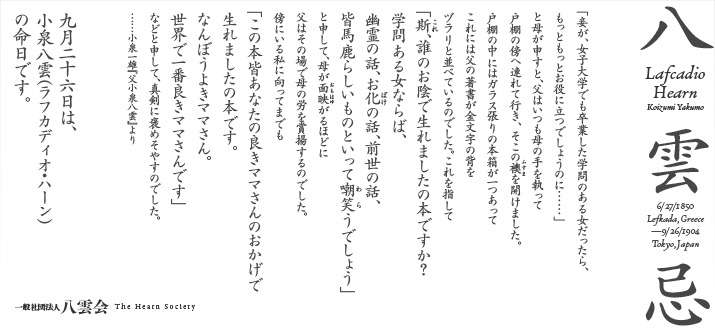 八雲忌
Lafcadio
Hearn
Koizumi Yakumo
6/27/1850
Lefkada, Greece
—9/26/1904
Tokyo, Japan
「妾が、女子大学でも卒業した学問のある女だったら、
もっともっとお役に立つでしょうのに……」
と母が申すと、父はいつも母の手を執って
戸棚の傍へ連れて行き、そこの襖を開けました。
戸棚の中にはガラス張りの本箱が一つあって
これには父の著書が金文字の背を
ヅラリと並べているのでした。これを指して
「斯、誰のお陰で生れましたの本ですか?
学問ある女ならば、
幽霊の話、お化の話、前世の話、
皆馬鹿らしいものといって嘲笑うでしょう」
と申して、母が面映がるほどに
父はその場で母の労を賞揚するのでした。
傍にいる私に向ってまでも
「この本皆あなたの良きママさんのおかげで
生れましたの本です。
なんぼうよきママさん。
世界で一番良きママさんです」
などと申して、真剣に褒めそやすのでした。
……小泉一雄『父小泉八雲』より
九月二十六日は、
小泉八雲(ラフカディオ・ハーン)
の命日です。
一般社団法人 八雲会 The Hearn Society